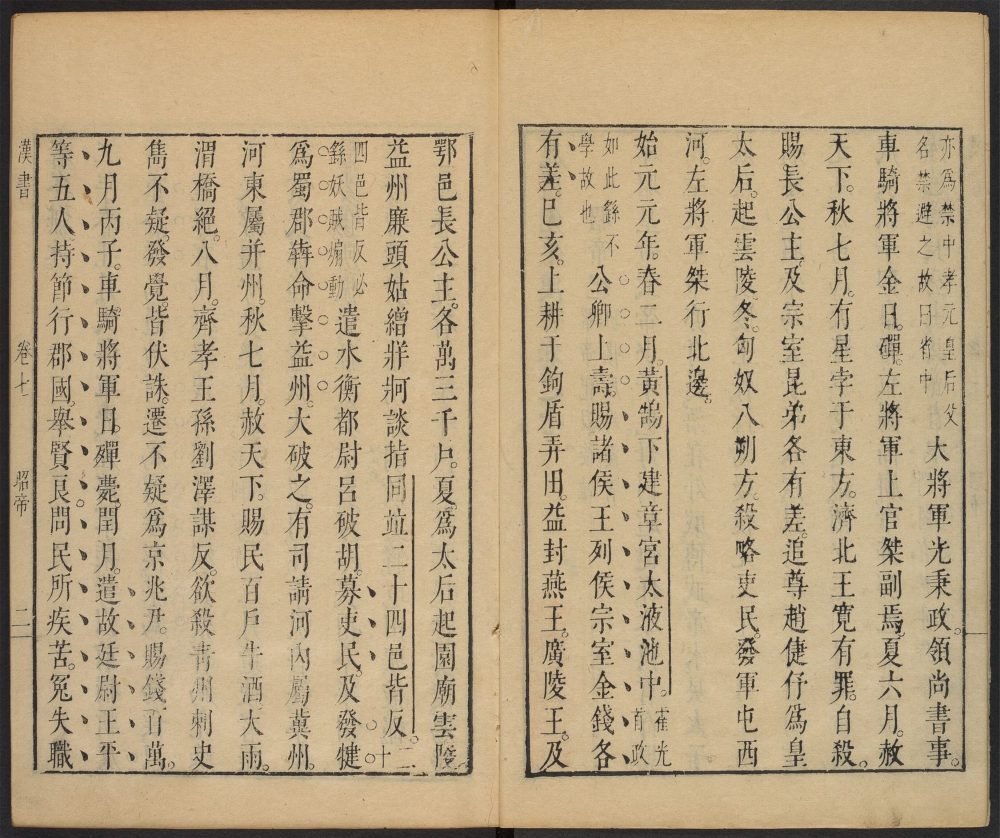 亦爲禁中孝元皇后父
名禁避之故曰省中
大將軍光秉政領尚書事。
車騎將軍金日磾。左將軍上官桀副焉。夏六月。赦
天下。秋七月。有星孛于東方。濟北王寬有罪。自殺。
賜長公主。及宗室昆弟各有差。追尊趙倢伃爲皇
太后。起雲陵。冬。匈奴入朔方。殺略吏民。發軍屯西
河。左將軍桀行北邊。
始元元年。春二月。黃鵠下建章宮太液池中。
霍光
首政
如此繇不
學故也
公卿上壽。賜諸侯王列侯宗室金錢各
有差。己亥。上耕于鉤盾弄田。益封燕王。廣陵王。及
鄂邑長公主。各萬三千戶。夏。爲太后起園廟雲陵。
益州廉頭姑繒牂牁談指同並二十四邑皆反。
二
十
四邑皆反必
繇妖賊煽動
遣水衡都尉呂破胡。募吏民。及發犍
爲蜀郡犇命擊益州。大破之。有司請河內屬冀州。
河東屬并州。秋七月。赦天下。賜民百戶牛酒。大雨。
渭橋絕。八月。齊孝王孫劉澤謀反。欲殺青州刺史
雋不疑。發覺。皆伏誅。遷不疑爲京兆尹。賜錢百萬。
九月丙子。車騎將軍日磾薨。閏月。遣故廷尉王平
等五人。持節行郡國。舉賢良。問民所疾苦。冤失職
漢書
卷七
昭帝
二